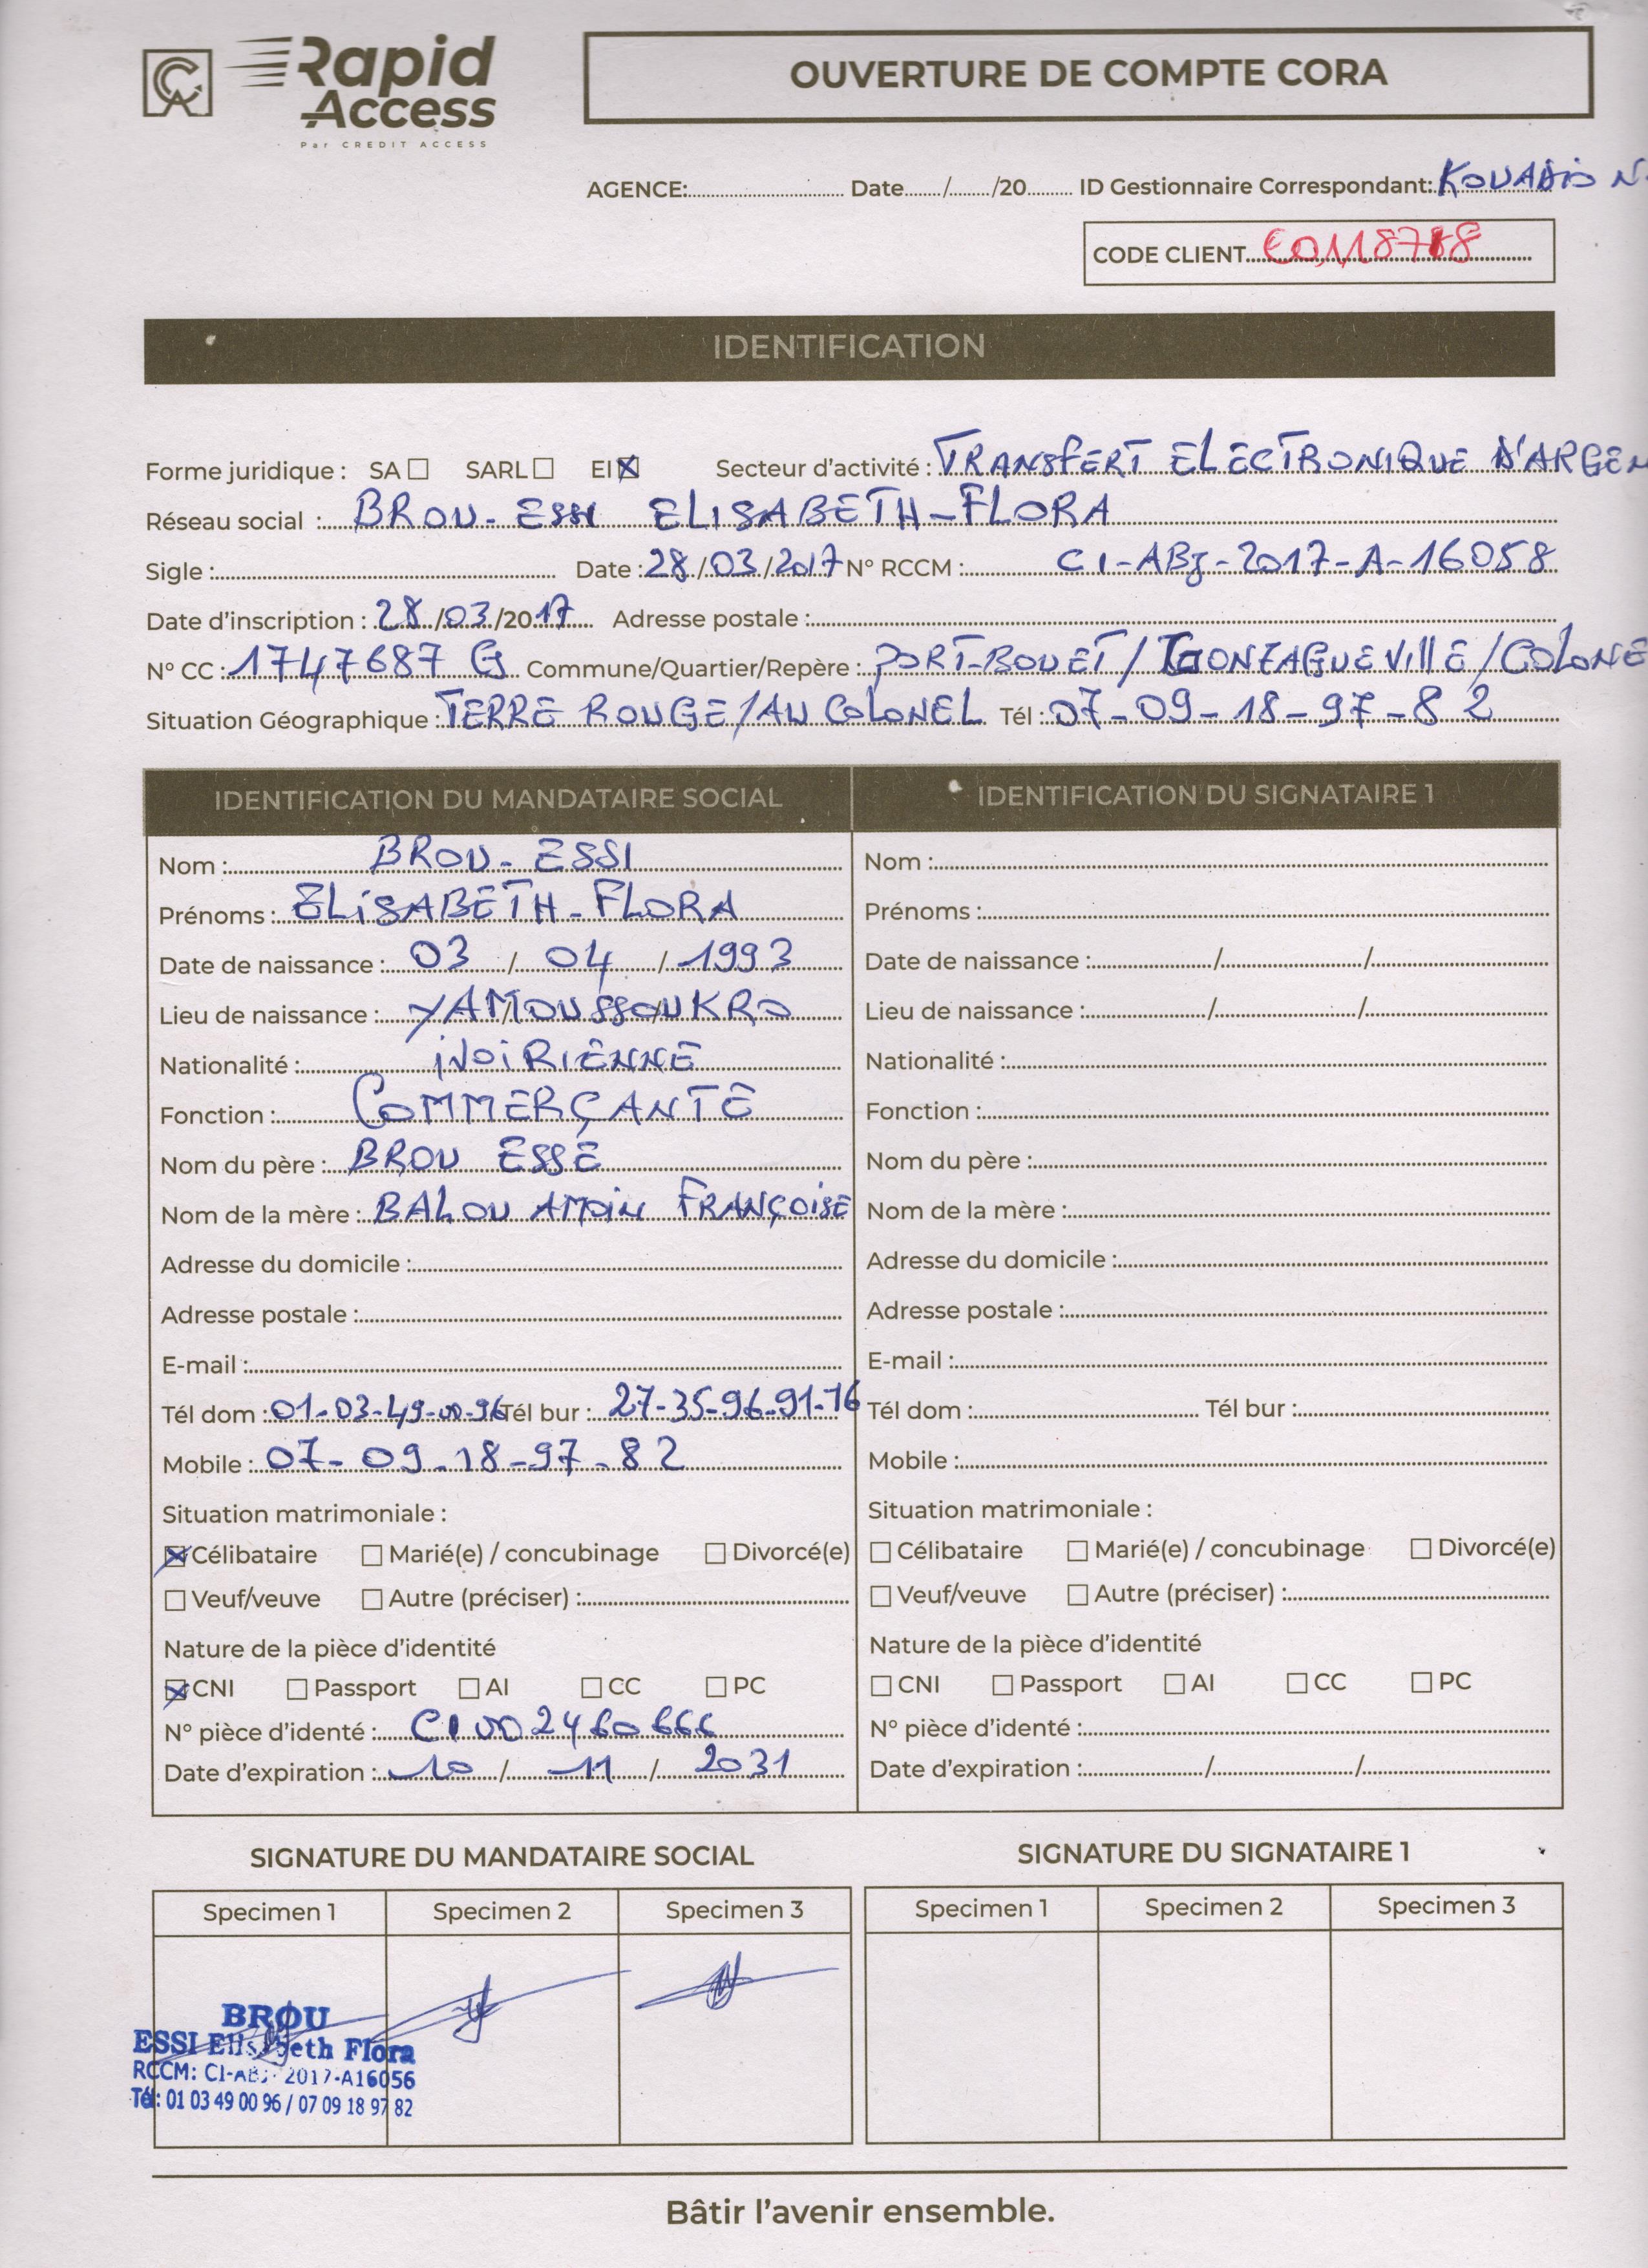 CA Rapid Access
Par CREDIT ACCESS
OUVERTURE DE COMPTE CORA
AGENCE:.......... Date....../....../20...... ID Gestionnaire Correspondant: KOUADIO N.
CODE CLIENT
IDENTIFICATION
Forme juridique : SA ☐ SARL ☐ EI ☒ Secteur d'activité : TRANSFERT ELECTRONIQUE D'ARGEN
Réseau social : BROU-ESSI ELISABETH-FLORA
Sigle :.......... Date : 28/03/2017 N° RCCM : CI-ABJ-2017-A-16058
Date d'inscription : 28/03/2017 Adresse postale :..........
N° CC : 1747687 G Commune/Quartier/Repère : PORT-BOUET/GONZAGUEVILLE/COLONE
Situation Géographique : TERRE ROUGE/AU COLONEL Tél : 07-09-18-97-82
IDENTIFICATION DU MANDATAIRE SOCIAL
Nom : BROU-ESSI
Prénoms : ELISABETH-FLORA
Date de naissance : 03/04/1993
Lieu de naissance : YAMOUSSOUKRO
Nationalité : IVOIRIENNE
Fonction : COMMERÇANTE
Nom du père : BROU ESSE
Nom de la mère : BALOU AMOIN FRANÇOISE
Adresse du domicile :..........
Adresse postale :..........
E-mail :..........
Tél dom : 01-03-49-00-96 Tél bur : 27-35-96-91-16
Mobile : 07-09-18-97-82
Situation matrimoniale :
☒ Célibataire ☐ Marié(e) / concubinage ☐ Divorcé(e)
☐ Veuf/veuve ☐ Autre (préciser) :..........
Nature de la pièce d'identité
☒ CNI ☐ Passport ☐ AI ☐ CC ☐ PC
N° pièce d'identé : CI002460666
Date d'expiration : 10/11/2031
IDENTIFICATION DU SIGNATAIRE 1
Nom :..........
Prénoms :..........
Date de naissance :........../........../..........
Lieu de naissance :........../........../..........
Nationalité :..........
Fonction :..........
Nom du père :..........
Nom de la mère :..........
Adresse du domicile :..........
Adresse postale :..........
E-mail :..........
Tél dom :.......... Tél bur :..........
Mobile :..........
Situation matrimoniale :
☐ Célibataire ☐ Marié(e) / concubinage ☐ Divorcé(e)
☐ Veuf/veuve ☐ Autre (préciser) :..........
Nature de la pièce d'identité
☐ CNI ☐ Passport ☐ AI ☐ CC ☐ PC
N° pièce d'identé :..........
Date d'expiration :........../........../..........
SIGNATURE DU MANDATAIRE SOCIAL
Specimen 1 Specimen 2 Specimen 3
BROU
ESSI Elisabeth Flora
RCCM: CI-ABJ-2017-A16056
Tél: 01 03 49 00 96 / 07 09 18 97 82
SIGNATURE DU SIGNATAIRE 1
Specimen 1 Specimen 2 Specimen 3
Bâtir l'avenir ensemble.